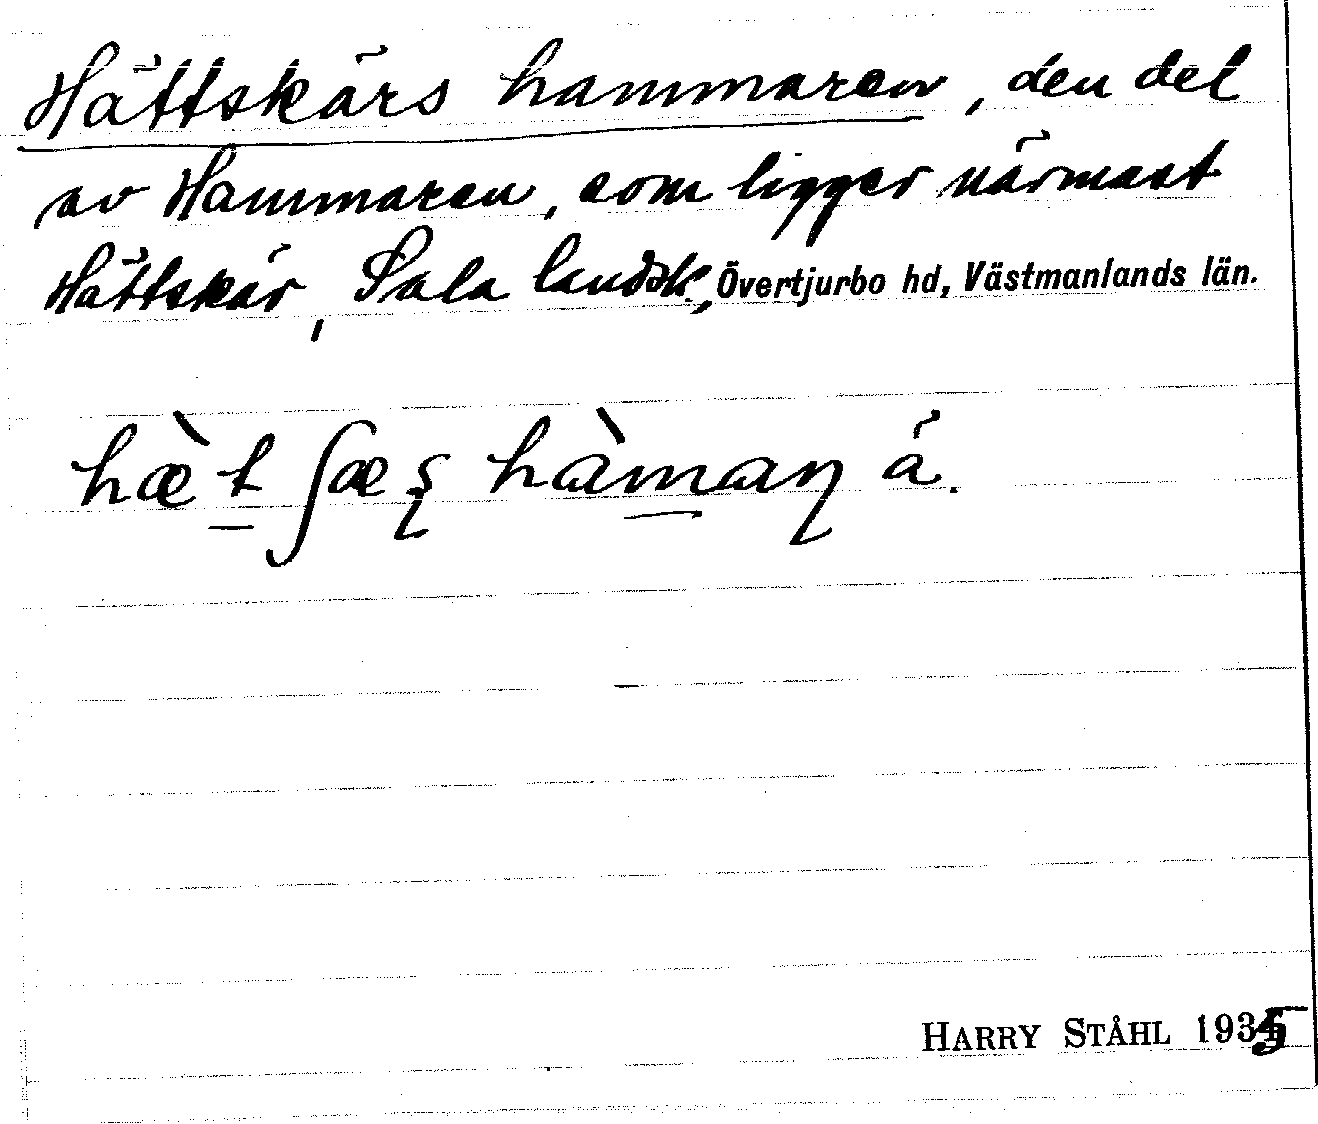 Hättskärs hammaren, den del
av Hammaren, som ligger närmast
Hättskär, Sala landsk, Övertjurbo hd, Västmanlands län.
hæ̀t ʃæʂ hàmaɳ á.
HARRY STÅHL 1935